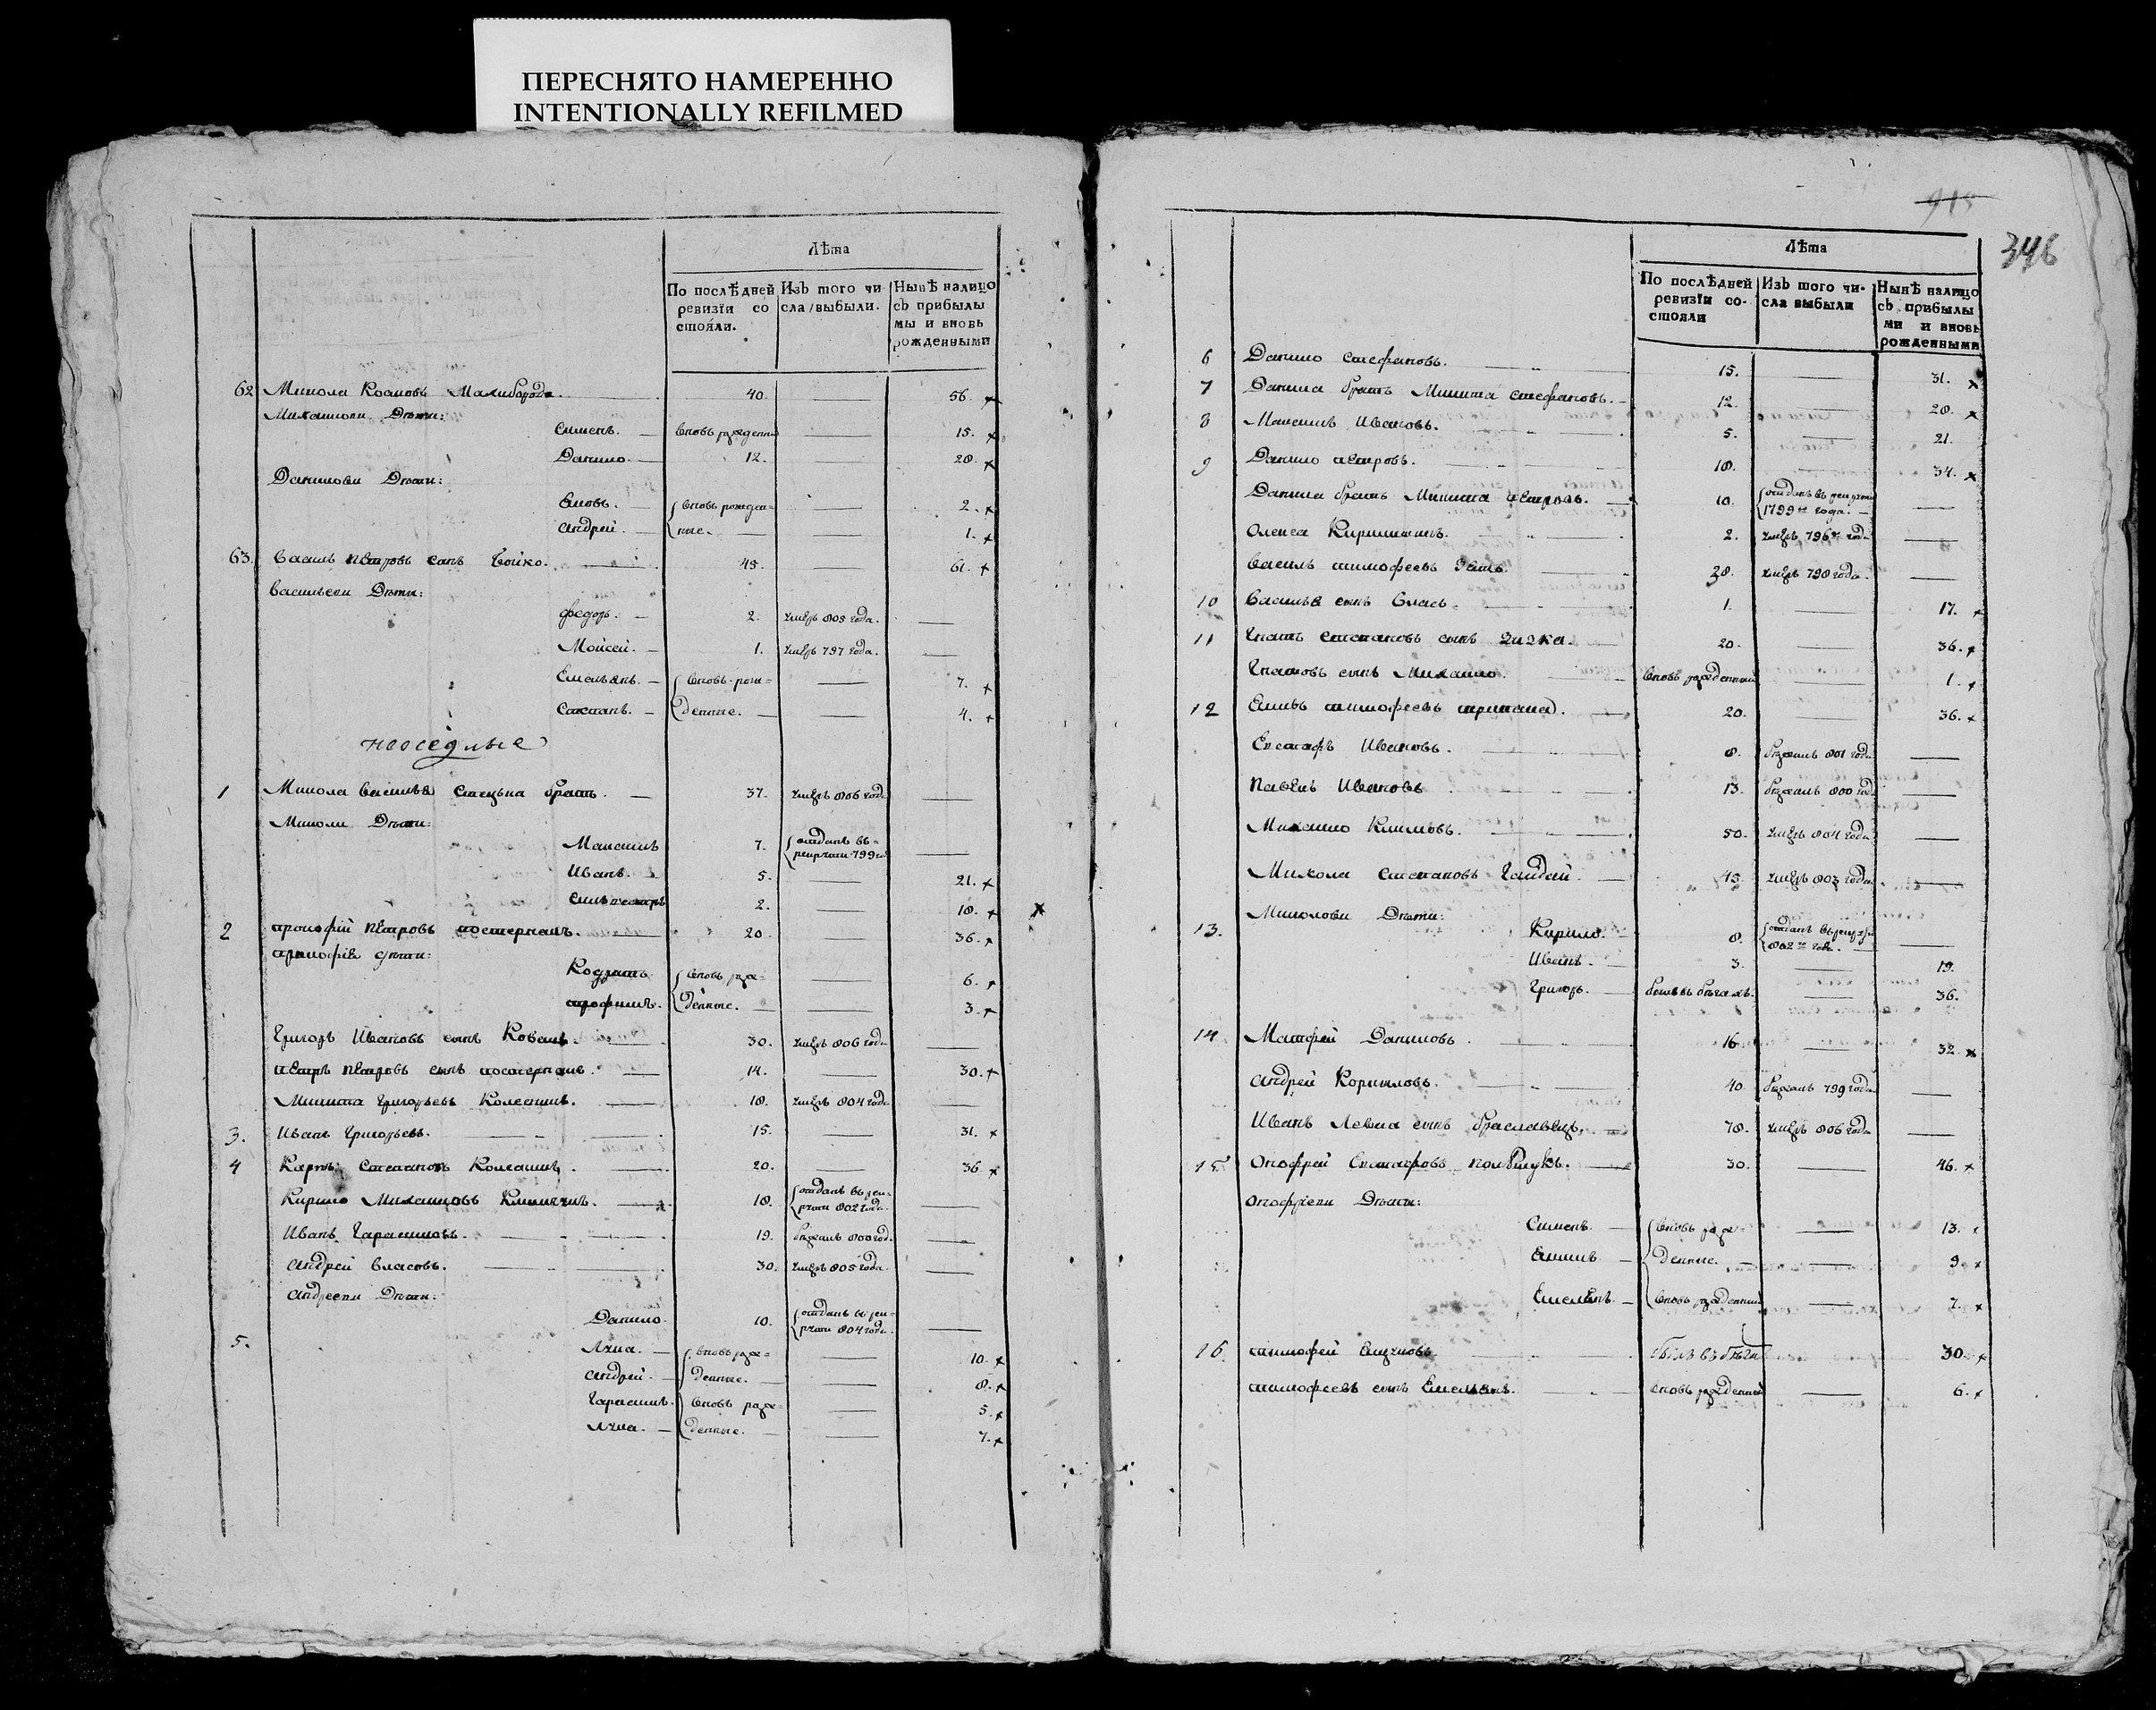 ПЕРЕСНЯТО НАМЕРЕННО
INTENTIONALLY REFILMED
Лѣта
По послѣдней ревизіи состояли.
Изъ того числа выбыли.
Нынѣ налицо съ прибылыми и вновь рожденными
62 Микола Малиборода. 40. 56.
Дѣти:
Сименъ. вновь рожденны 15.
Данило. 12. 28.
Даниловы Дѣти:
вновь рожден= 2.
Андрей. ные. 1.
63. Василь Петровъ сынъ Бойко. 45. 61.
Васильевы Дѣти:
Федоръ. 2. умеръ 805 года.
Мойсей. 1. умеръ 797 года.
Емельянъ. вновь рож= 7.
Степанъ. денные. 4.
неоседлые
1 Микола Стецька братъ. 37. умеръ 806 года
Миколи Дѣти:
Максимъ 7. отданъ въ рекруты 799го
Иванъ. 5. 21.
2. 18.
2 Прокофій Петровъ 20. 36.
Прокофія дѣти:
Кодратъ вновь рож= 6.
Трофимъ. денные. 3.
Григоръ Ивановъ сынъ Коваль. 30. умеръ 806 года
Петръ Петровъ сынъ 14. 30.
Микита Григорьевъ Колесникъ. 18. умеръ 804 года
3. Иванъ Григорьевъ. 15. 31.
4 Карпъ Степановъ 20. 36
Кирило Михайловъ 18. отданъ въ рекруты 802 года.
Иванъ Гарасимовъ. 19. бежалъ 800 год.
Андрей Власовъ. 30. умеръ 805 года.
Андреевы Дѣти:
Данило. 10. отданъ въ рекруты 804 года.
5. Лука. вновь рож= 10.
Андрей. денные. 8.
Гарасимъ. вновь рож= 5.
Лука. денные. 7.
915
346
Лѣта
По послѣдней ревизіи состояли
Изъ того числа выбыли
Нынѣ налицо съ прибылыми и вновь рожденными
6 Данило Стефановъ. 15. 31.
7 Данила братъ Микита Стефановъ. 12. 28.
8 Максимъ Ивановъ. 5. 21.
9 Данило Петровъ. 18. 34.
Данила братъ Микита Петровъ. 10. отданъ въ рекруты 1799го года.
Олекса 2. умеръ 796го года
Василь Тимофеевъ зять. 28. умеръ 798 года.
10 Василья сынъ Власъ. 1. 17.
11 Игнатъ Степановъ сынъ 20. 36.
Игнатовъ сынъ Михайло. вновь рожденный 1.
12 Тимофеевъ 20. 36.
Евстафъ Ивановъ. 8. бежалъ 801 года
Павелъ Ивановъ 13. бежалъ 800 года
Михайло Климовъ. 50. умеръ 804 года
Микола Степановъ Гайдай. 45. умеръ 803 года.
Миколовы Дѣти:
13. Кирило. 8. отданъ въ рекруты 802го года.
Иванъ. 3. 19.
Григоръ. 36.
14 Матфей Даниловъ. 16 32
Андрей Корниловъ. 40. бежалъ 799 года
Иванъ Левка сынъ 78. умеръ 806 года
15 Онофрей Евстафовъ 30. 46.
Онофреевы Дѣти:
Сименъ. вновь рож= 13.
денные. 9.
Емельянъ. вновь рожденный 7.
16 Тимофей былъ въ бѣгах 30.
Тимофеевъ сынъ Емельянъ. вновь рожденный 6.